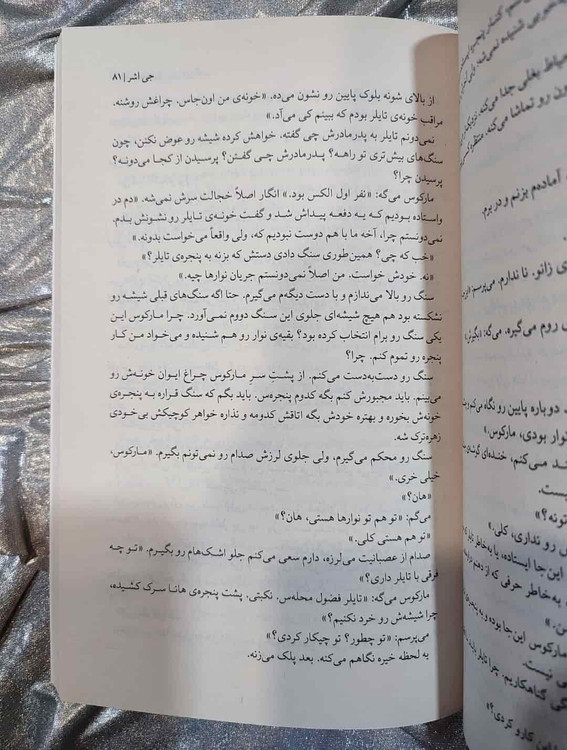 جی اشر | ۸۱
از بالای شونه بلوک پایین رو نشون می‌ده. «خونه‌ی من اون‌جاس. چراغش روشنه.
مراقب خونه‌ی تایلر بودم که ببینم کی می‌آد.»
نمی‌دونم تایلر به پدرمادرش چی گفته. خواهش کرده شیشه رو عوض نکنن، چون
سنگ‌های بیش‌تری تو راهه؟ پدرمادرش چی گفتن؟ پرسیدن از کجا می‌دونه؟
پرسیدن چرا؟
مارکوس می‌گه: «نفر اول الکس بود.» انگار اصلاً خجالت سرش نمی‌شه. «دم در
واستاده بودیم که یه دفعه پیداش شد و گفت خونه‌ی تایلر رو نشونش بدم.
نمی‌دونستم چرا، آخه ما با هم دوست نبودیم که، ولی واقعاً می‌خواست بدونه.»
«خب که چی؟ همین‌طوری سنگ دادی دستش که بزنه به پنجره‌ی تایلر؟»
«نه. خودش خواست. من اصلاً نمی‌دونستم جریان نوارها چیه.»
سنگ رو بالا می‌ندازم و با دست دیگه‌م می‌گیرم. حتا اگه سنگ‌های قبلی شیشه رو
نشکسته بود هم هیچ شیشه‌ای جلوی این سنگ دووم نمی‌آورد. چرا مارکوس این
یکی سنگ رو برام انتخاب کرده بود؟ بقیه‌ی نوار رو هم شنیده و می‌خواد من کار
پنجره رو تموم کنم. چرا؟
سنگ رو دست‌به‌دست می‌کنم. از پشتِ سرِ مارکوس چراغ ایوان خونه‌ش رو
می‌بینم. باید مجبورش کنم بگه کدوم پنجره‌س. باید بگم که سنگ قراره به پنجره‌ی
خونه‌ش بخوره و بهتره خودش بگه اتاقش کدومه و نذاره خواهر کوچیکش بی‌خودی
زهره‌ترک شه.
سنگ رو محکم می‌گیرم، ولی جلوی لرزش صدام رو نمی‌تونم بگیرم. «مارکوس،
خیلی خری.»
«هان؟»
می‌گم: «تو هم تو نوارها هستی، هان؟»
«تو هم هستی کلی.»
صدام از عصبانیت می‌لرزه، دارم سعی می‌کنم جلو اشک‌هام رو بگیرم. «تو چه
فرقی با تایلر داری؟»
مارکوس می‌گه: «تایلر فضول محله‌س. نکبتی. پشت پنجره‌ی هانا سرک کشیده،
چرا شیشه‌ش رو خرد نکنیم؟»
می‌پرسم: «تو چطور؟ تو چیکار کردی؟»
یه لحظه خیره نگاهم می‌کنه. بعد پلک می‌زنه.
آماده‌م بزنم و در برم.
دوباره پایین رو نگاه می‌کنم
نوار بودی، مارکوس.»